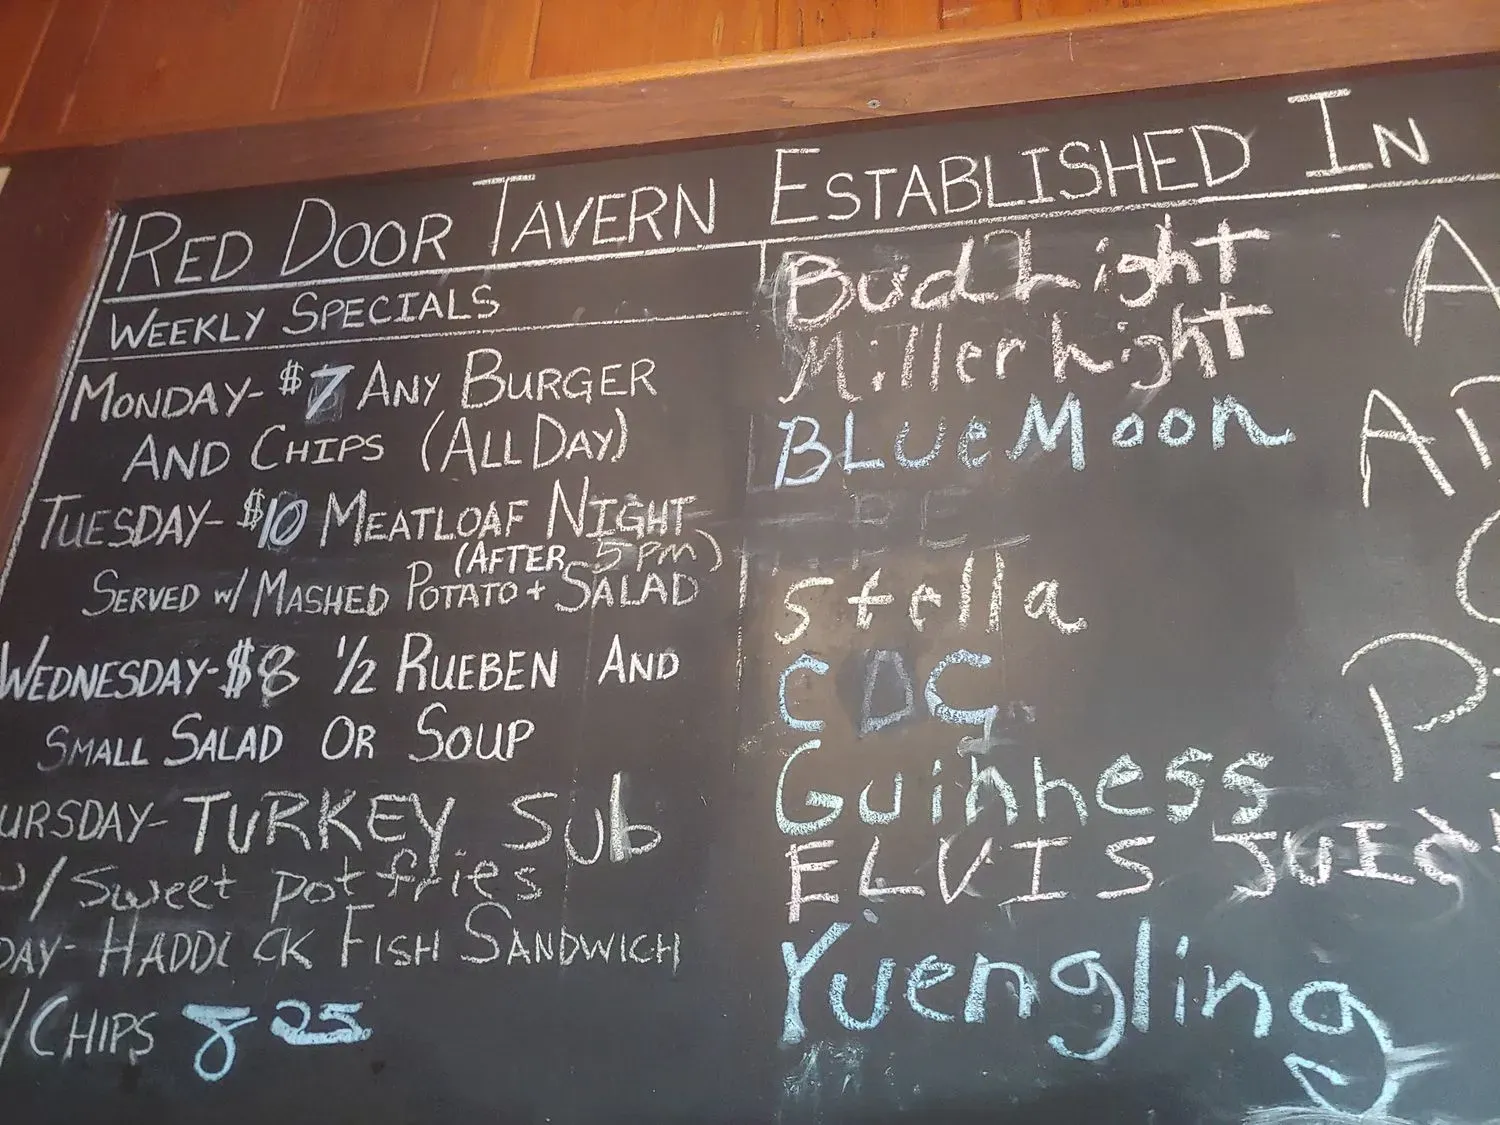 RED DOOR TAVERN ESTABLISHED IN
WEEKLY SPECIALS
MONDAY- $7 ANY BURGER
AND CHIPS (ALL DAY)
TUESDAY- $10 MEATLOAF NIGHT
(AFTER 5 PM)
SERVED W/ MASHED POTATO + SALAD
WEDNESDAY- $8 1/2 RUEBEN AND
SMALL SALAD OR SOUP
URSDAY- TURKEY SUB
W/ Sweet pot fries
DAY- HADDICK FISH SANDWICH
/CHIPS 8 25
Bud Light
Miller Light
BLUE MOON
stella
Guinness
ELVIS JUICE
Yuengling